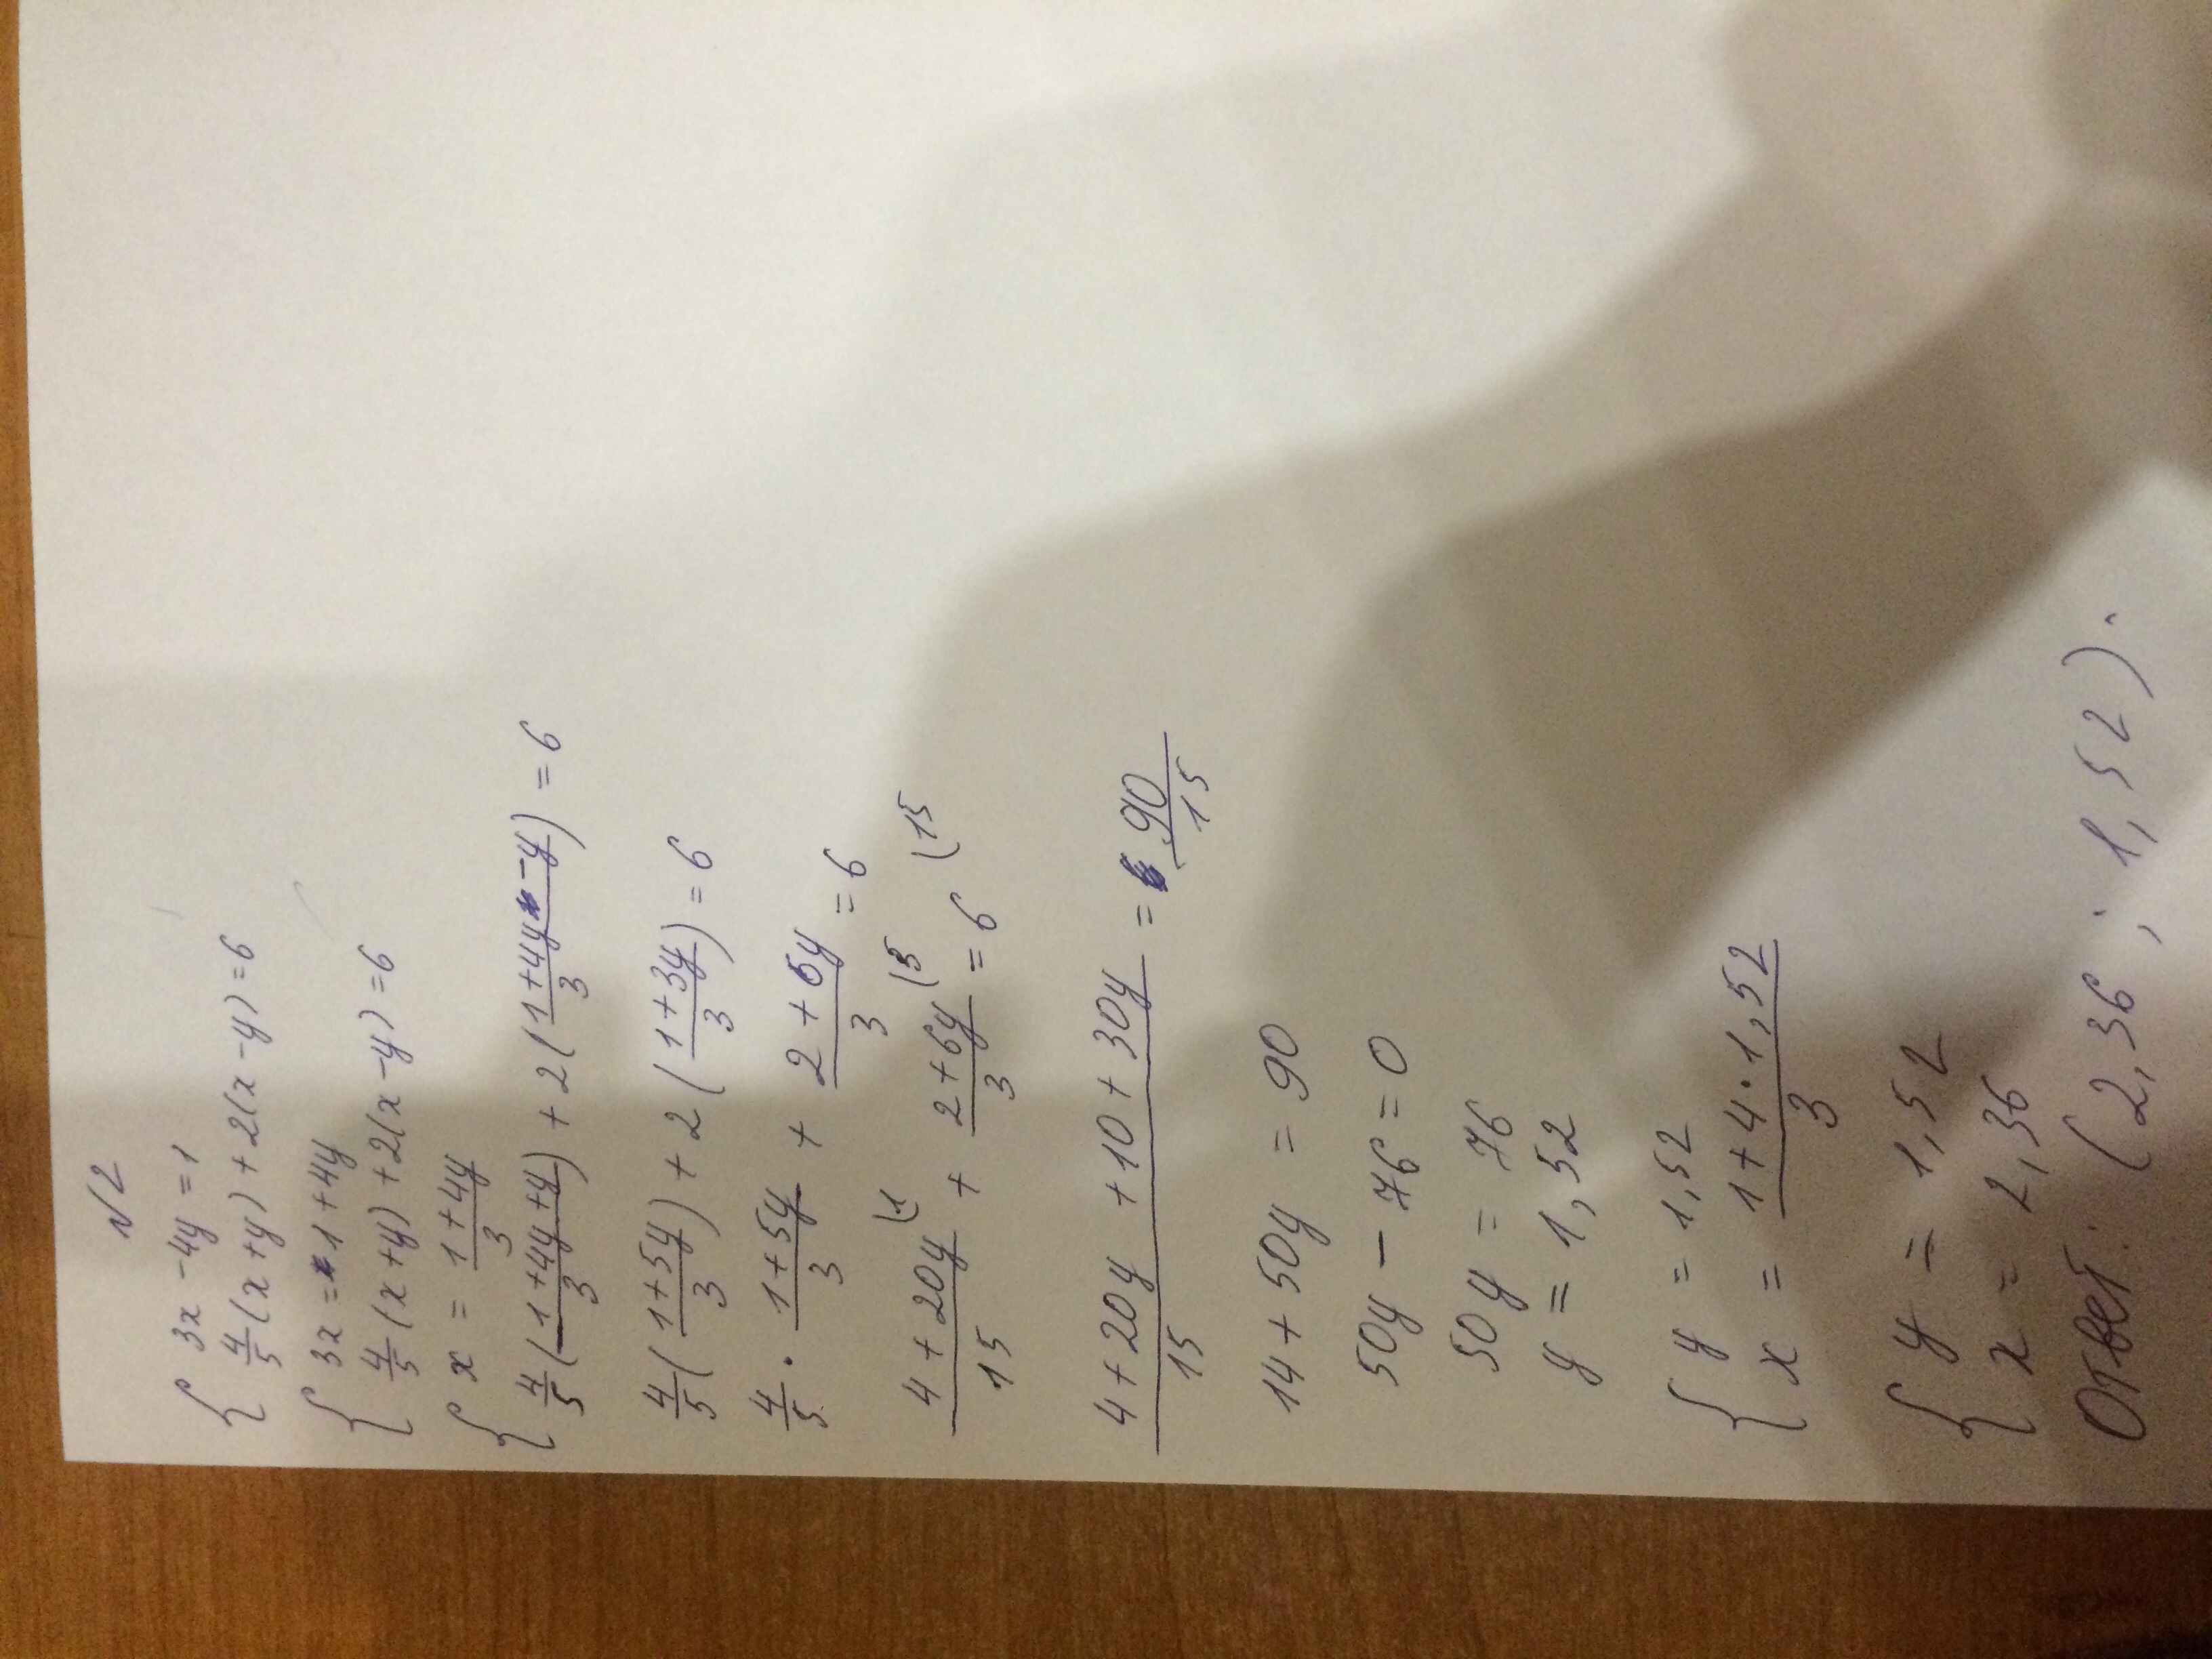 №2
{ 3x - 4y = 1
4/5 (x + y) + 2(x - y) = 6
{ 3x = 1 + 4y
4/5 (x + y) + 2(x - y) = 6
{ x = (1 + 4y)/3
4/5 ((1 + 4y + y)/3) + 2((1 + 4y - y)/3) = 6
4/5 ((1 + 5y)/3) + 2((1 + 3y)/3) = 6
4/5 · (1 + 5y)/3 + (2 + 6y)/3 = 6
(4 + 20y)/15 (1 + (2 + 6y)/3 (5 = 6 (15
(4 + 20y + 10 + 30y)/15 = 90/15
14 + 50y = 90
50y - 76 = 0
50y = 76
y = 1,52
{ y = 1,52
x = (1 + 4 · 1,52)/3
{ y = 1,52
x = 2,36
Ответ: (2,36 ; 1,52).